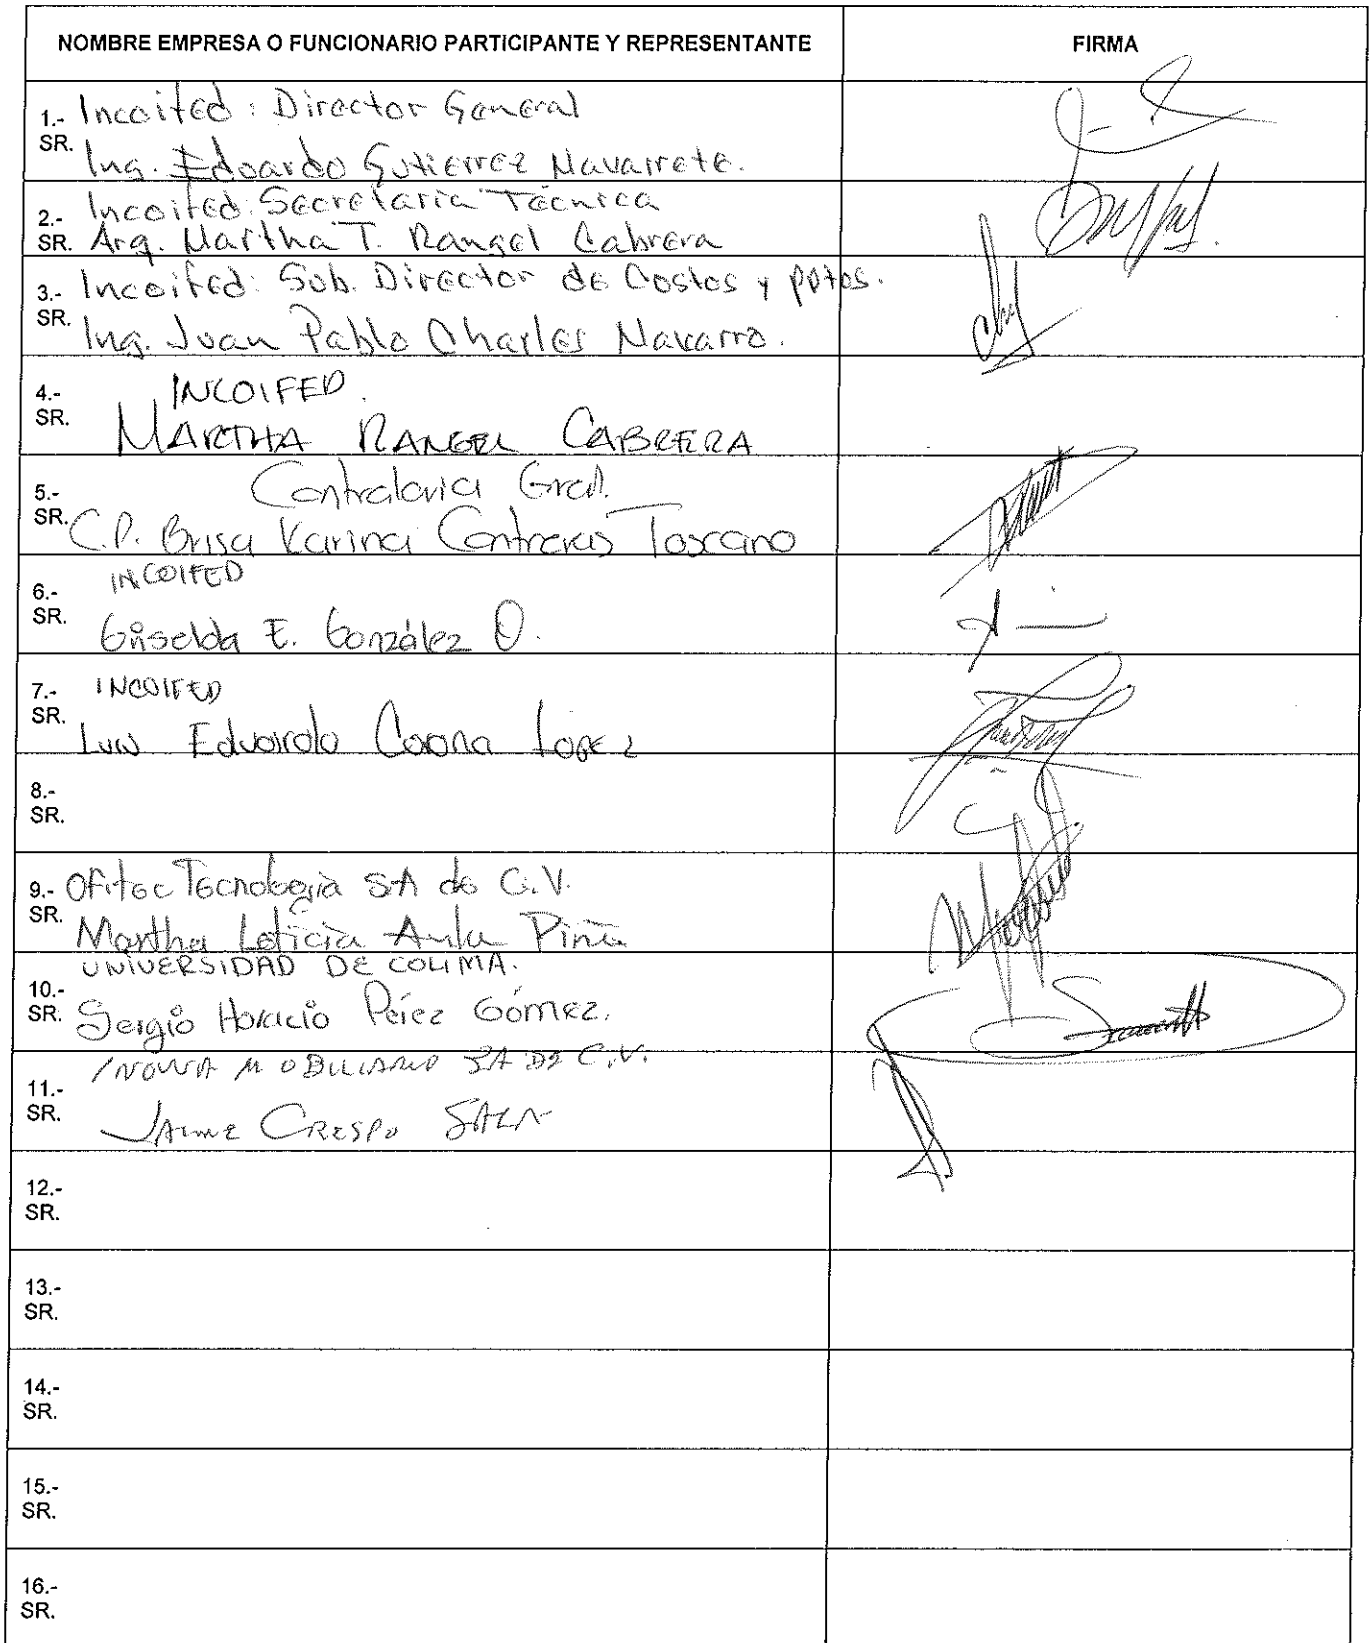 NOMBRE EMPRESA O FUNCIONARIO PARTICIPANTE Y REPRESENTANTE
FIRMA
1.- Incoifed: Director General
SR. Ing. Edoardo Gutierrez Navarrete.
2.- Incoifed: Secretaria Técnica
SR. Arq. Martha T. Rangel Cabrera
3.- Incoifed: Sub. Director de Costos y pptos.
SR. Ing. Juan Pablo Charles Navarro.
4.- INCOIFED.
SR. MARTHA RANGEL CABRERA
5.- Contraloria Gral.
SR. C.P. Brisa Karina Contreras Toscano
6.- INCOIFED
SR. Griselda E. González O.
7.- INCOIFED
SR. Luis Eduardo Corona Lopez
8.-
SR.
9.- Ofitec Tecnología SA de C.V.
SR. Martha Leticia Piña
UNIVERSIDAD DE COLIMA.
10.-
SR. Sergio Horacio Pérez Gómez.
INOVVA MOBILIARIO SA DE C.V.
11.-
SR. JAIME CRESPO
12.-
SR.
13.-
SR.
14.-
SR.
15.-
SR.
16.-
SR.